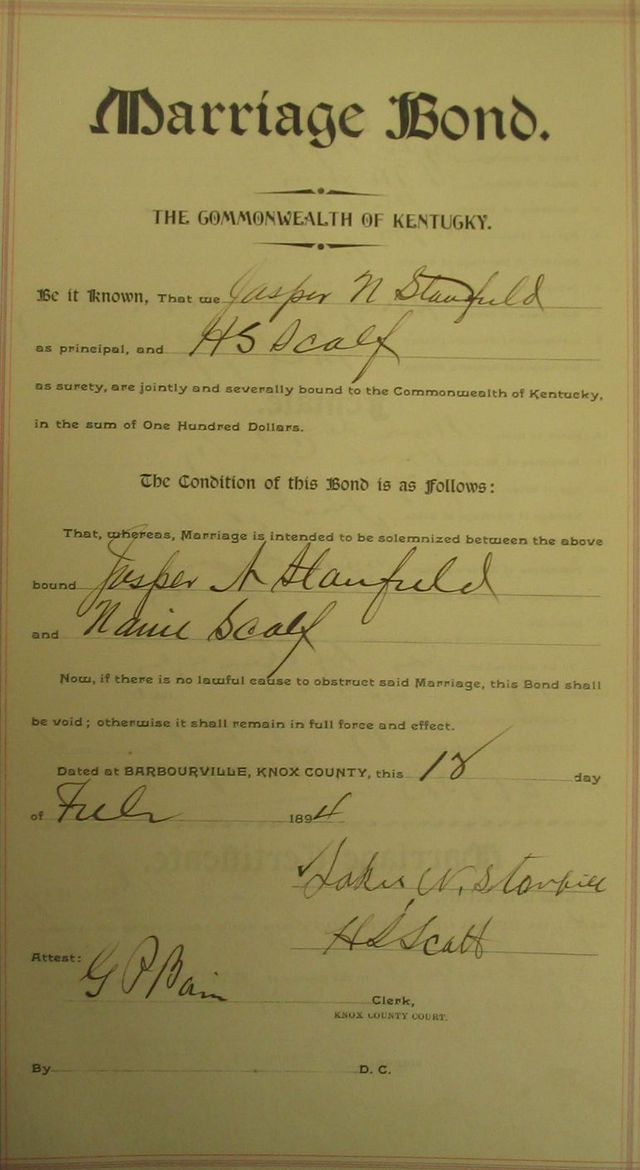 Marriage Bond.
THE COMMONWEALTH OF KENTUCKY.
Be it Known, That we Jasper N Stanfield
as principal, and HS Scalf
as surety, are jointly and severally bound to the Commonwealth of Kentucky,
in the sum of One Hundred Dollars.
The Condition of this Bond is as Follows:
That, whereas, Marriage is intended to be solemnized between the above
bound Jasper N Stanfield
and Scalf
Now, if there is no lawful cause to obstruct said Marriage, this Bond shall
be void; otherwise it shall remain in full force and effect.
Dated at BARBOURVILLE, KNOX COUNTY, this 18 day
of Feb 1894
N. Stanfill
H S Scalf
Attest: G P Bain
Clerk,
KNOX COUNTY COURT.
By D. C.